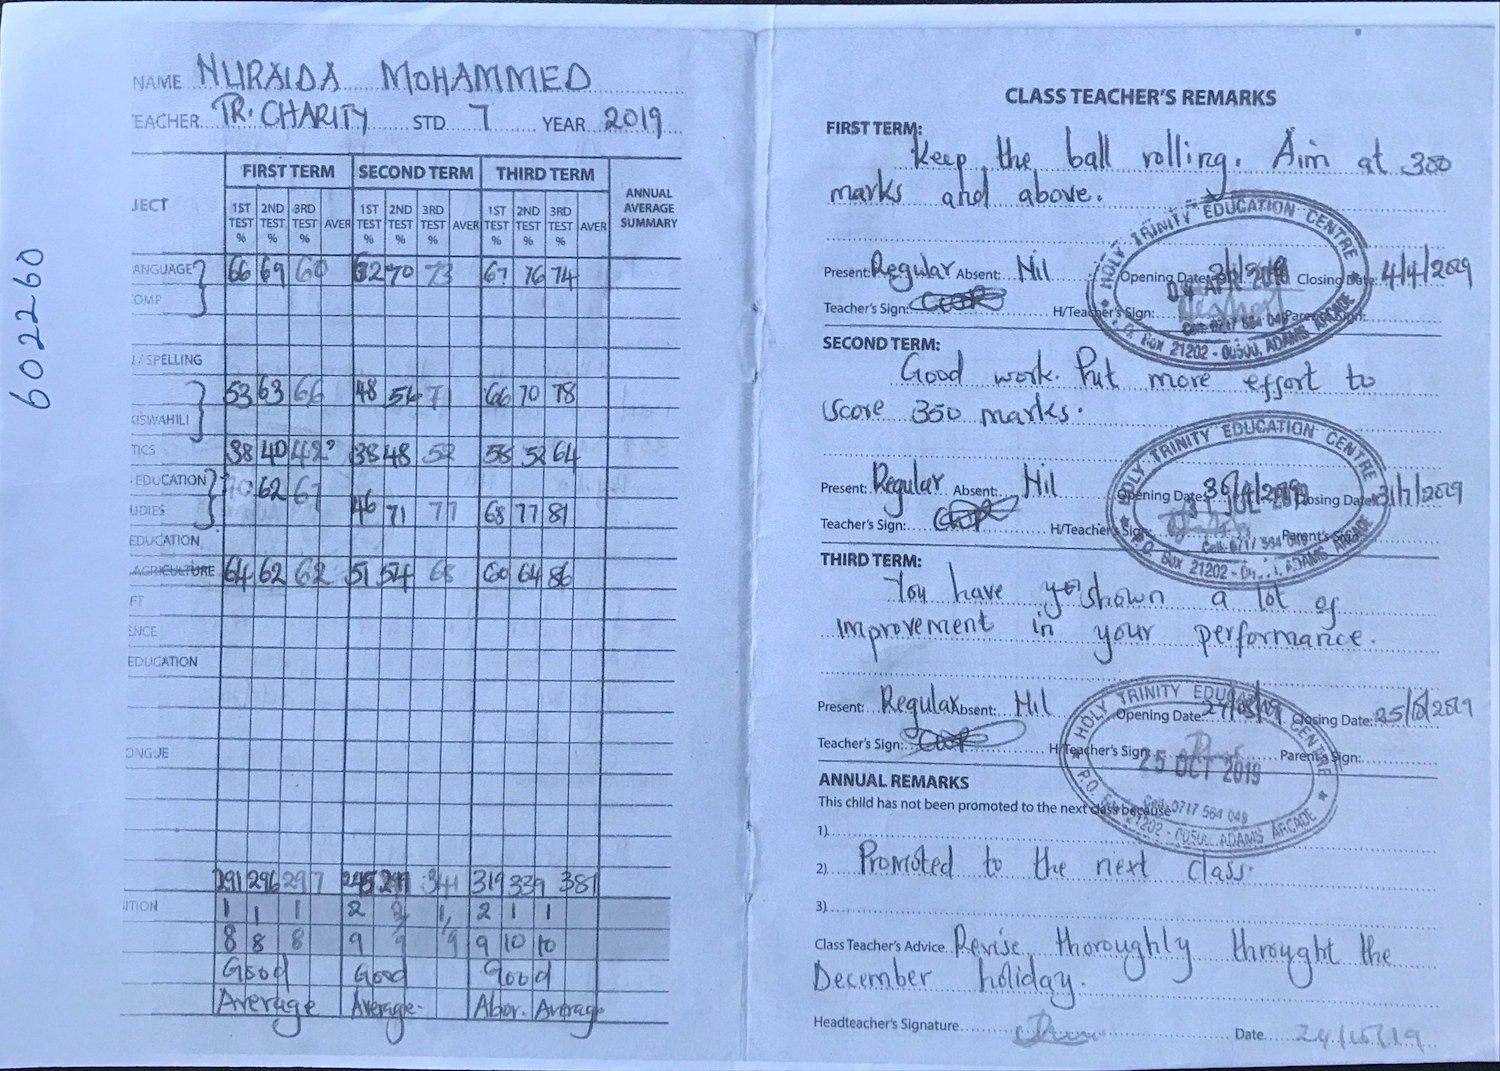 602260
NAME NURAIDA MOHAMMED
EACHER TR. CHARITY STD 7 YEAR 2019
FIRST TERM SECOND TERM THIRD TERM ANNUAL AVERAGE SUMMARY
JECT 1ST TEST % 2ND TEST % 3RD TEST % AVER 1ST TEST % 2ND TEST % 3RD TEST % AVER 1ST TEST % 2ND TEST % 3RD TEST % AVER
ANGUAGE 66 69 60 62 70 73 67 76 74
OMP
/ SPELLING
53 63 66 48 54 71 66 70 78
KISWAHILI
TICS 38 40 42 38 48 52 58 52 64
EDUCATION 70 62 67
UDIES 46 71 77 68 77 81
EDUCATION
AGRICULTURE 64 62 62 51 54 68 60 64 86
FT
ENCE
EDUCATION
ONGUE
291 296 297 245 299 341 319 339 381
ITION 1 1 1 2 2 1, 2 1 1
8 8 8 9 9 9 9 10 10
Good Good Good
Average Average. Abov. Average
CLASS TEACHER'S REMARKS
FIRST TERM:
Keep the ball rolling. Aim at 300
marks and above.
Present: Regular Absent: Nil Opening Date: Closing Date: 4/4/2019
Teacher's Sign: H/Teacher's Sign: Parent's Sign:
HOLY TRINITY EDUCATION CENTRE
04 APR 2019
Cell: 0717 564 048
P.O. Box 21202 - 00500, ADAMS ARCADE
SECOND TERM:
Good work. Put more effort to
score 350 marks.
Present: Regular Absent: Nil Opening Date: Closing Date: 31/7/2019
Teacher's Sign: H/Teacher's Sign: Parent's Sign
HOLY TRINITY EDUCATION CENTRE
31 JUL 2019
Cell: 0717 564 048
P.O. Box 21202 - ADAMS ARCADE
THIRD TERM:
You have shown a lot of
improvement in your performance.
Present: Regular Absent: Nil Opening Date: 27/08/19 Closing Date: 25/10/2019
Teacher's Sign: H/Teacher's Sign: Parent's Sign:
HOLY TRINITY EDUCATION CENTRE
25 OCT 2019
Cell: 0717 564 048
P.O. 21202 - 00500, ADAMS ARCADE
ANNUAL REMARKS
This child has not been promoted to the next class because
1)
2) Promoted to the next class.
3)
Class Teacher's Advice Revise thoroughly throught the
December holiday.
Headteacher's Signature Date 24/10/19